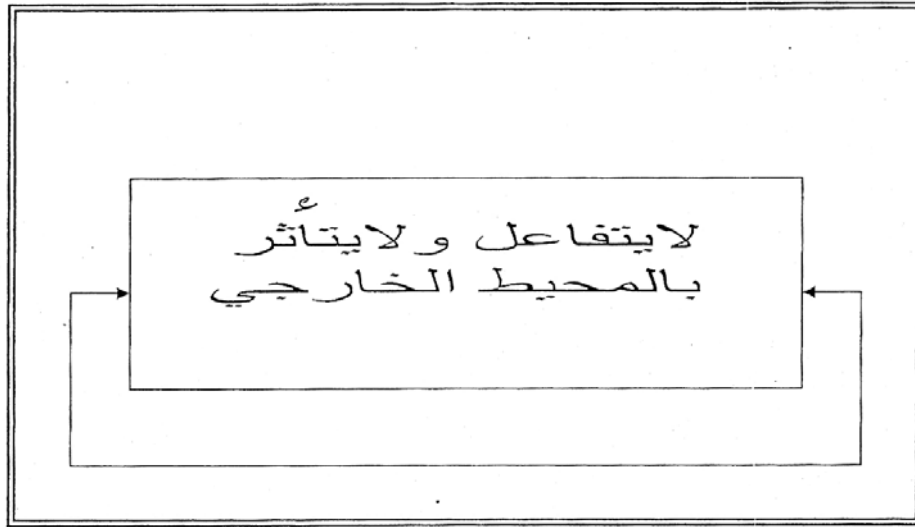 لايتفاعل ولايتأثر
بالمحيط الخارجي